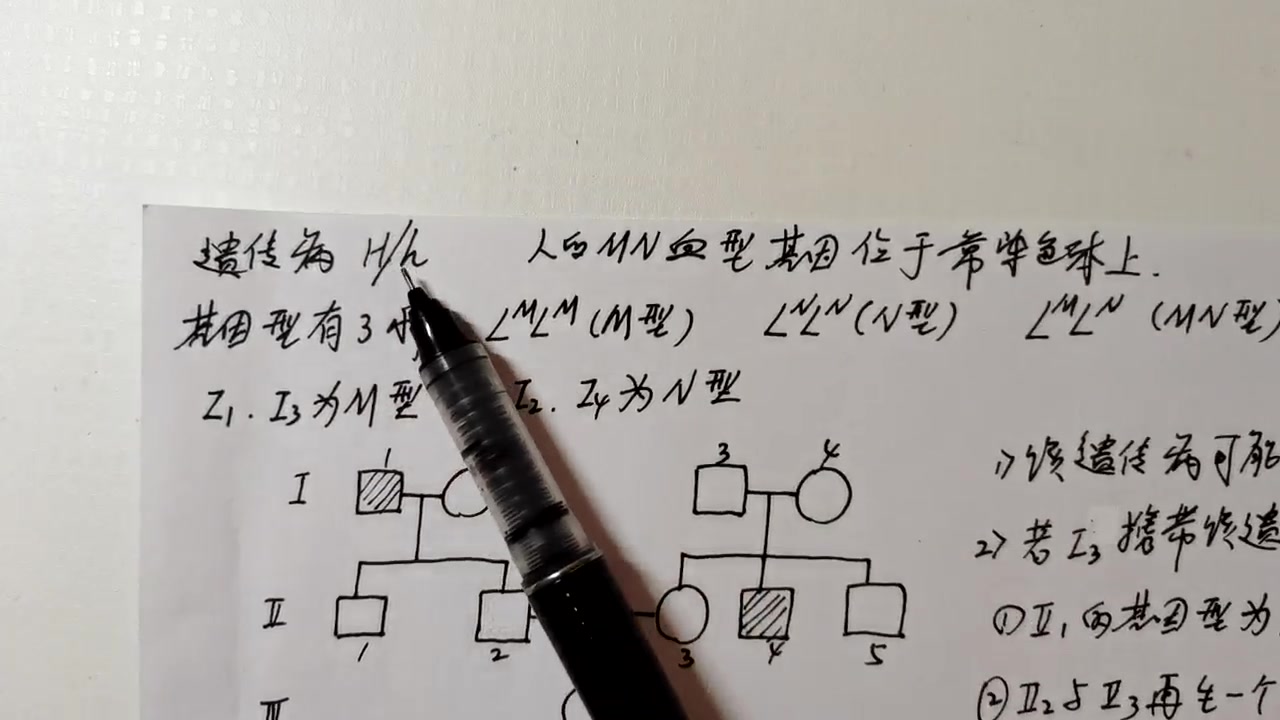 遗传病 H/h 人的MN血型基因位于常染色体上.
基因型有3 LᴹLᴹ (M型) LᴺLᴺ (N型) LᴹLᴺ (MN型)
I₁. I₃为M型 I₂. I₄为N型
1 3 4
I
1) 该遗传病可能
2) 若I₃携带该遗
II
1 2 3 4 5
①II₁的基因型为
②II₂与II₃再生一个
III